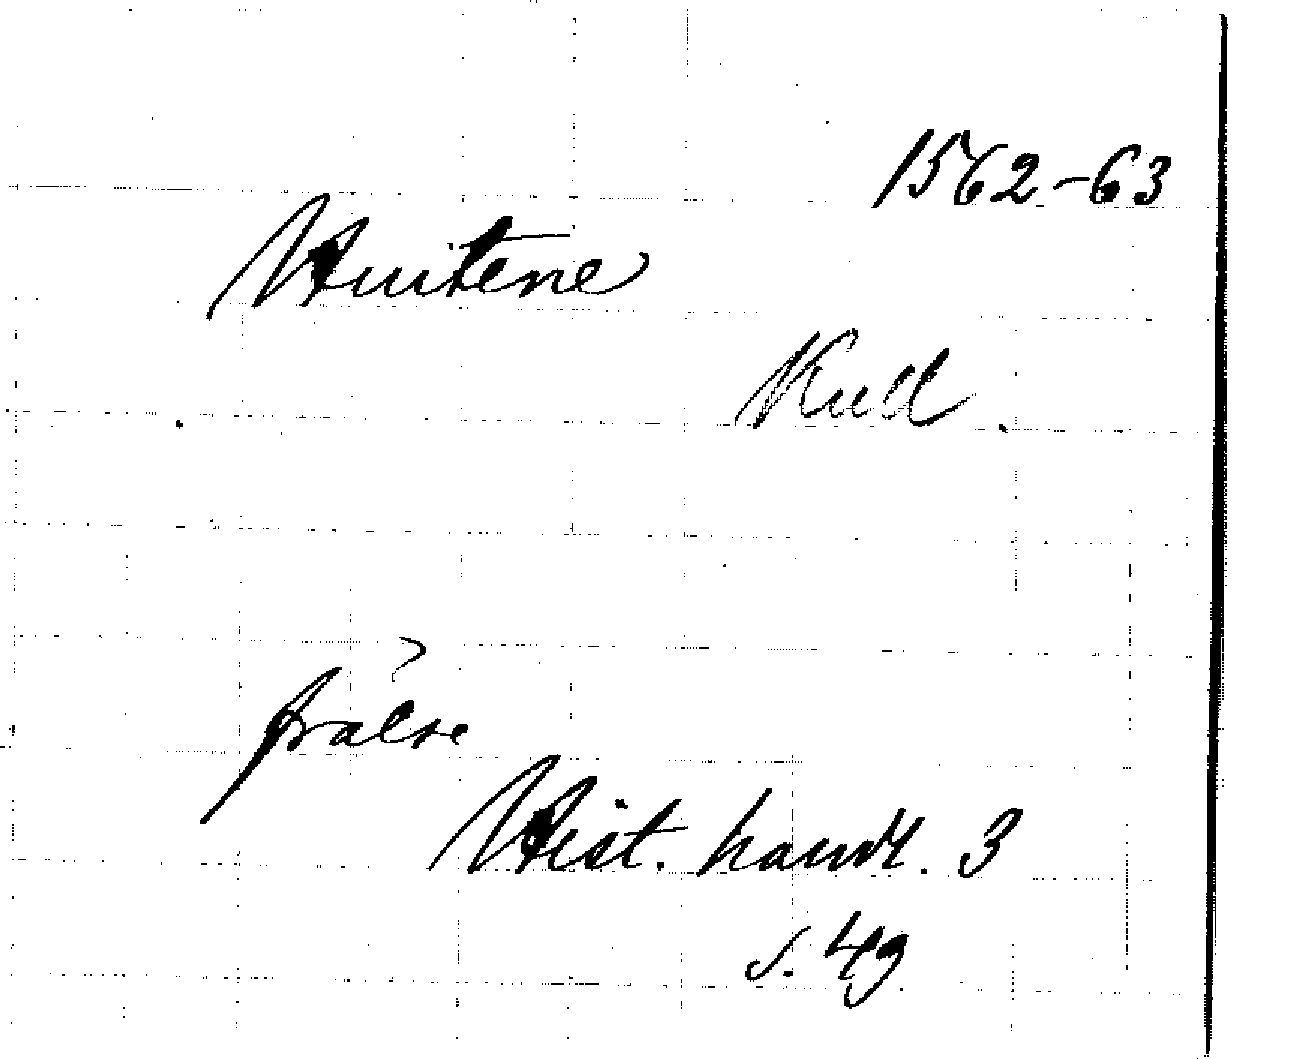 1562-63
Huitene
Kull.
?
frälse
Hist. handl. 3
s. 49